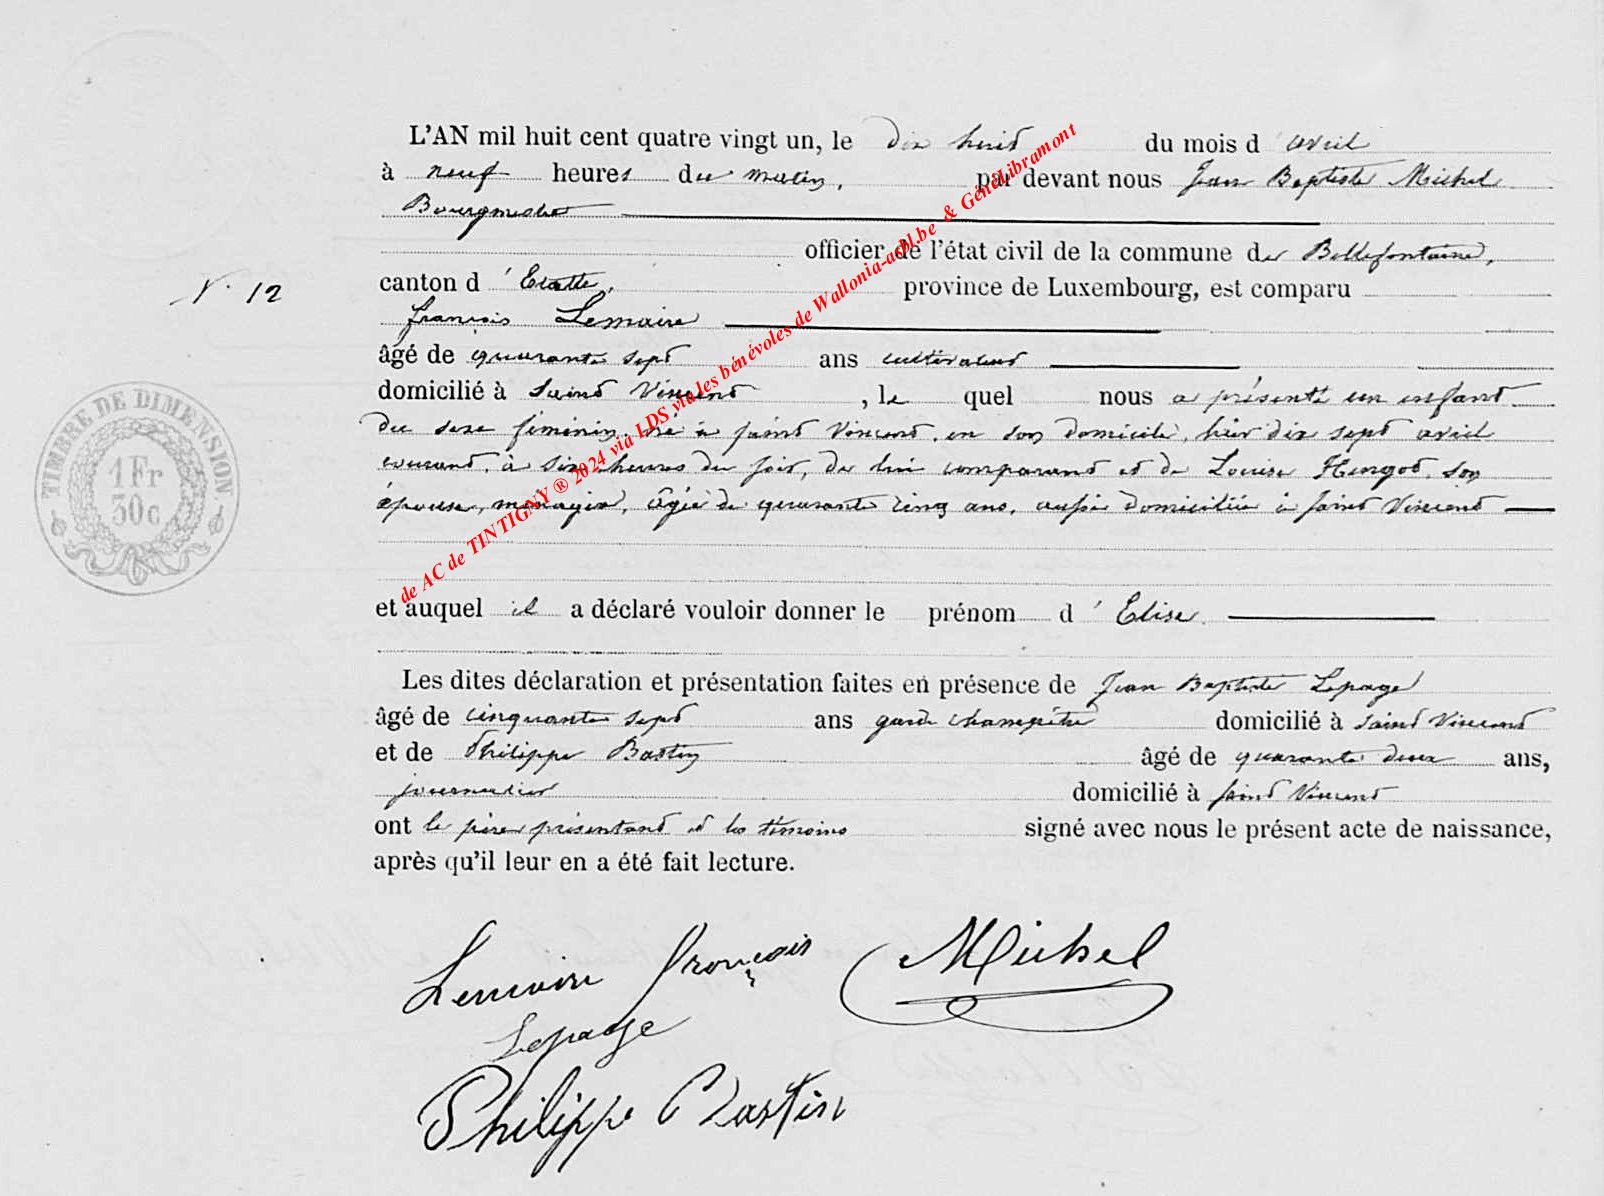 L'AN mil huit cent quatre vingt un, le dix huit du mois d'avril
à neuf heures du matin, par devant nous Jean Baptiste Michel
Bourgmestre
officier de l'état civil de la commune de Bellefontaine,
canton d'Etalle, province de Luxembourg, est comparu
N° 12
françois Lemaire
âgé de quarante sept ans cultivateur
domicilié à Saint Vincent, le quel nous a présenté un enfant
du sexe féminin, né à Saint Vincent, en son domicile, hier dix sept avril
courant, à six heures du soir, de lui comparant et de Louise Hurgot, son
épouse, ménagère, âgée de quarante cinq ans, aussi domiciliée à Saint Vincent
et auquel il a déclaré vouloir donner le prénom d'Elise.
Les dites déclaration et présentation faites en présence de Jean Baptiste Lepage
âgé de cinquante sept ans garde champêtre domicilié à Saint Vincent
et de Philippe Bastin âgé de quarante deux ans,
journalier domicilié à Saint Vincent
ont le père présentant et les témoins signé avec nous le présent acte de naissance,
après qu'il leur en a été fait lecture.
Lemaire françois
Michel
Lepage
Philippe Bastin
TIMBRE DE DIMENSION
1 Fr
50 c
de AC de TINTIGNY ® 2024 via LDS via les bénévoles de Wallonia-asbl.be & GénéLibramont